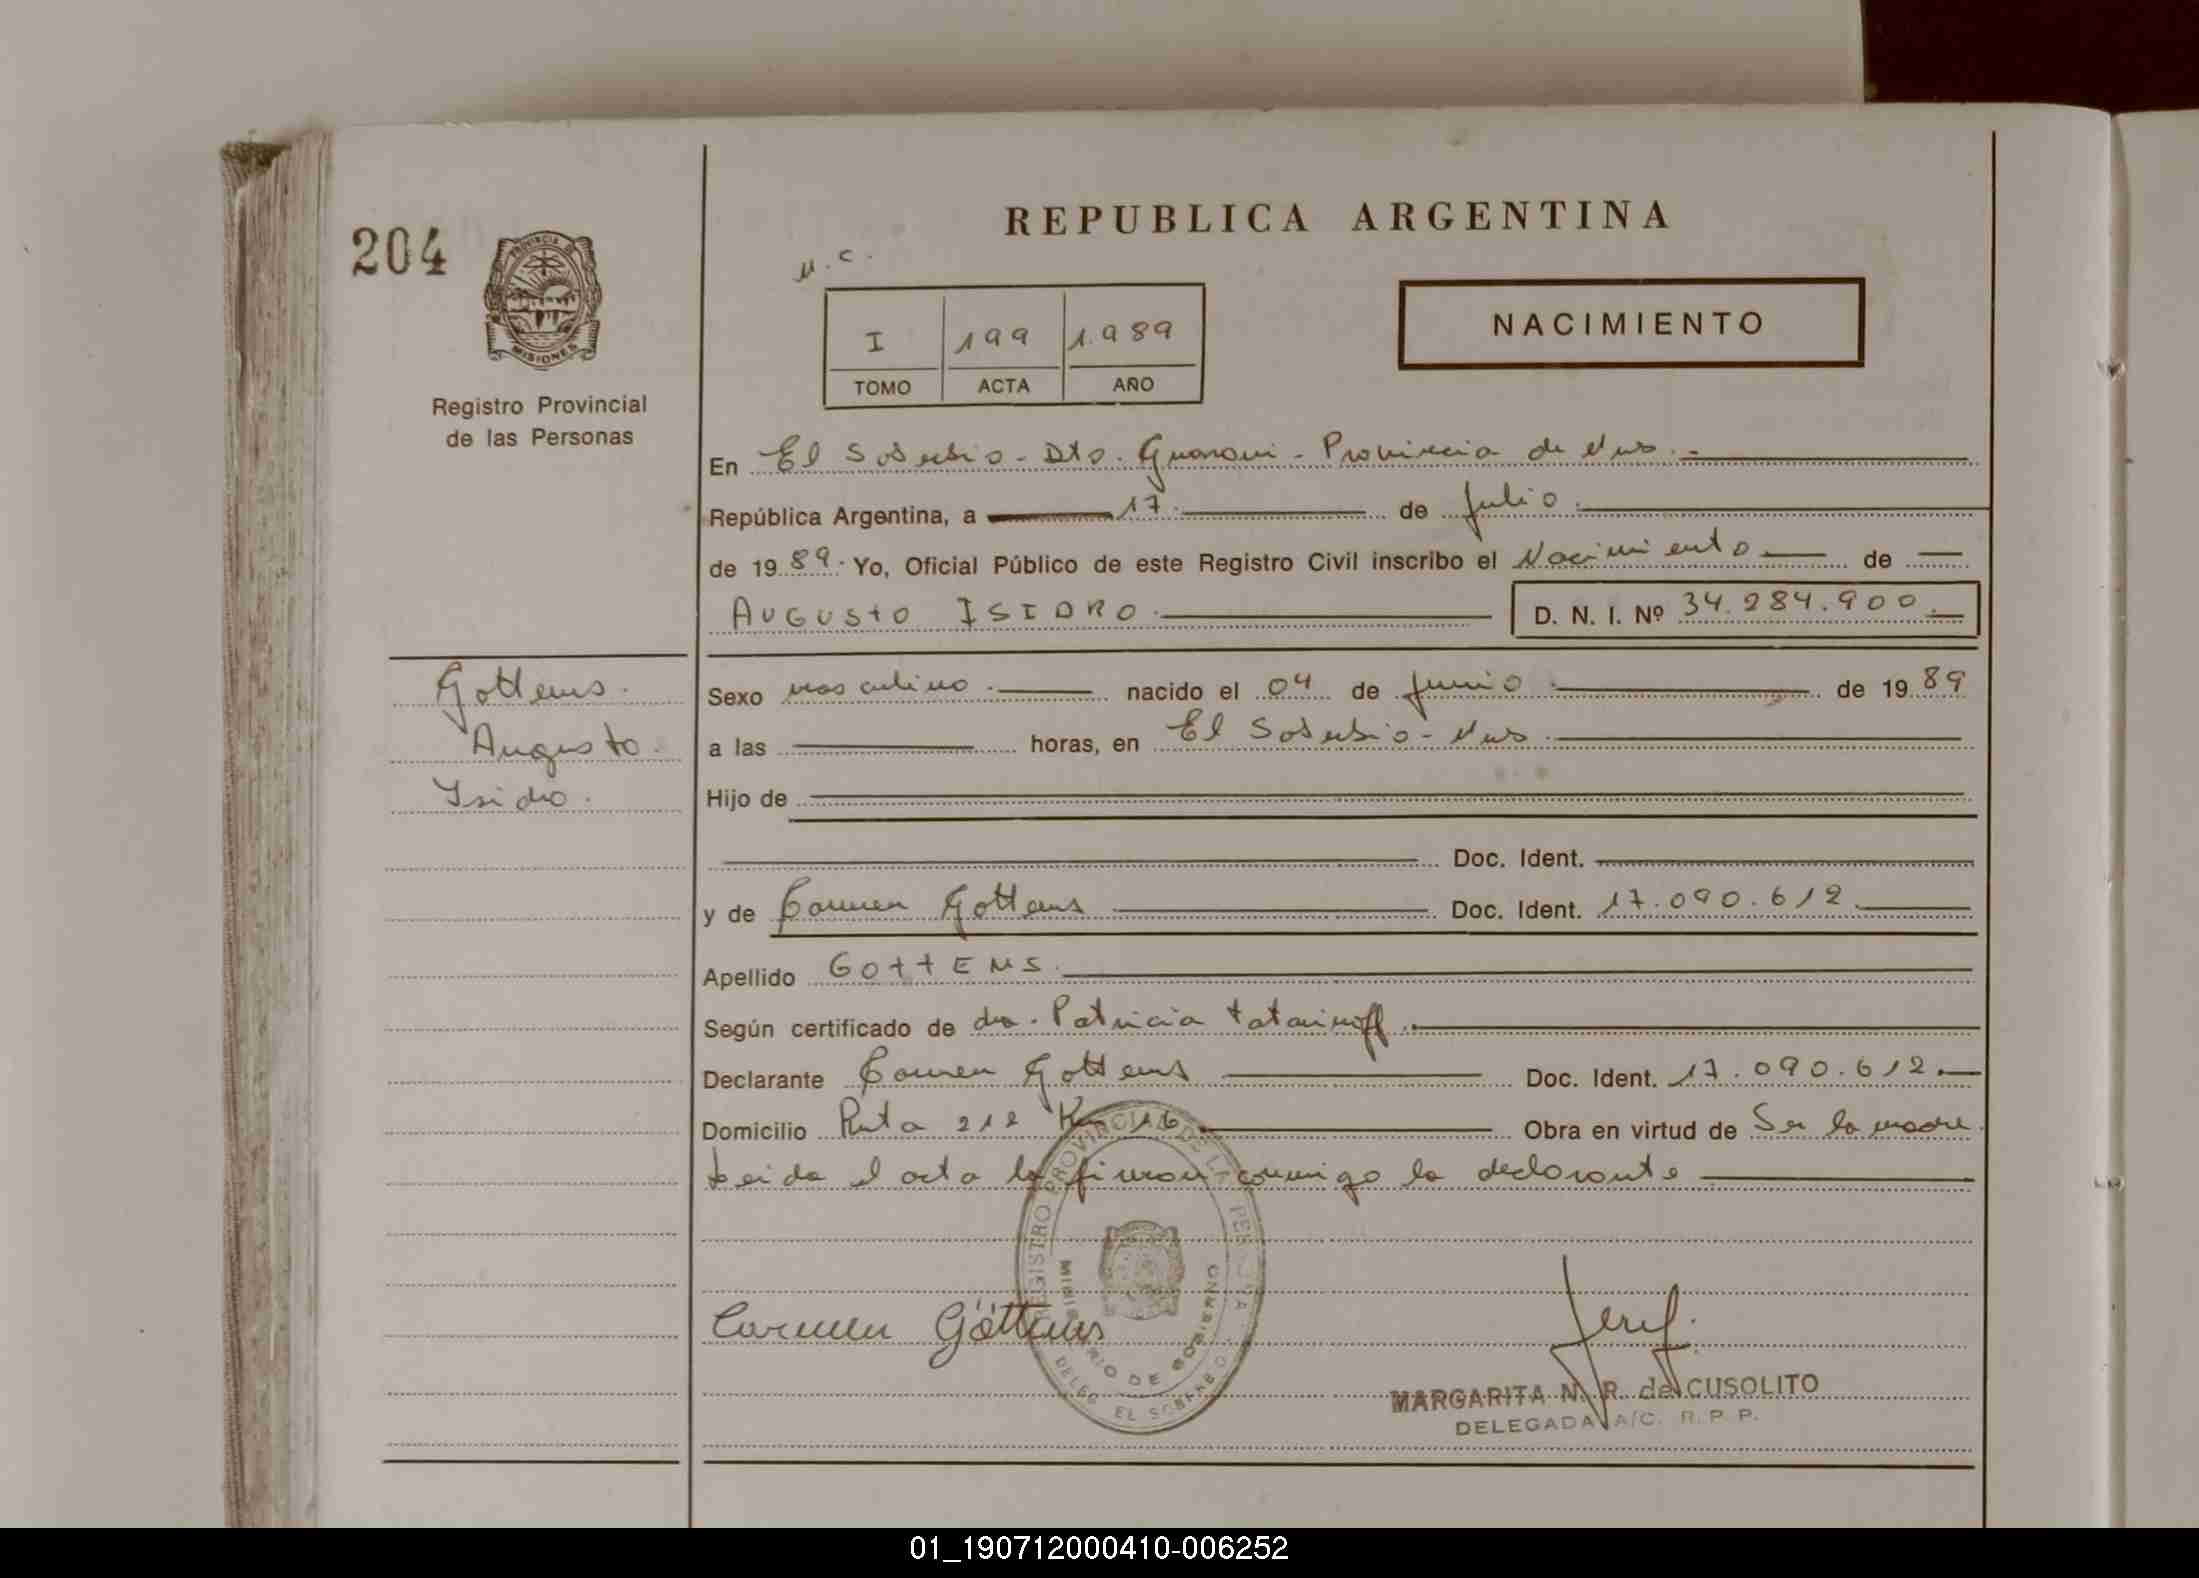 204
PROVINCIA DE
MISIONES
Registro Provincial
de las Personas
Gottems.
Augusto.
Isidro.
REPUBLICA ARGENTINA
I 199 1.989
TOMO ACTA AÑO
NACIMIENTO
En El Soberbio - Dto. Guarani - Provincia de Mnes.-
República Argentina, a 17 de Julio.
de 1989. Yo, Oficial Público de este Registro Civil inscribo el Nacimiento de
AUGUSTO ISIDRO. D. N. I. Nº 34.284.900.
Sexo masculino. nacido el 04 de Junio de 1989
a las horas, en El Soberbio - Mnes.
Hijo de
Doc. Ident.
y de Carmen Gottems Doc. Ident. 17.090.612.
Apellido GOTTEMS.
Según certificado de dra. Patricia Tatarinoff.
Declarante Carmen Gottems Doc. Ident. 17.090.612.
Domicilio Ruta 212 Km 16 Obra en virtud de Ser la madre.
Leida el acta la firman conmigo la declarante
REGISTRO PROVINCIAL DE LAS PERSONAS
MINISTERIO DE GOBIERNO
DELEG. EL SOBERBIO
Carmen Göttems
MARGARITA N. R. de CUSOLITO
DELEGADA A/C. R. P. P.
01_190712000410-006252